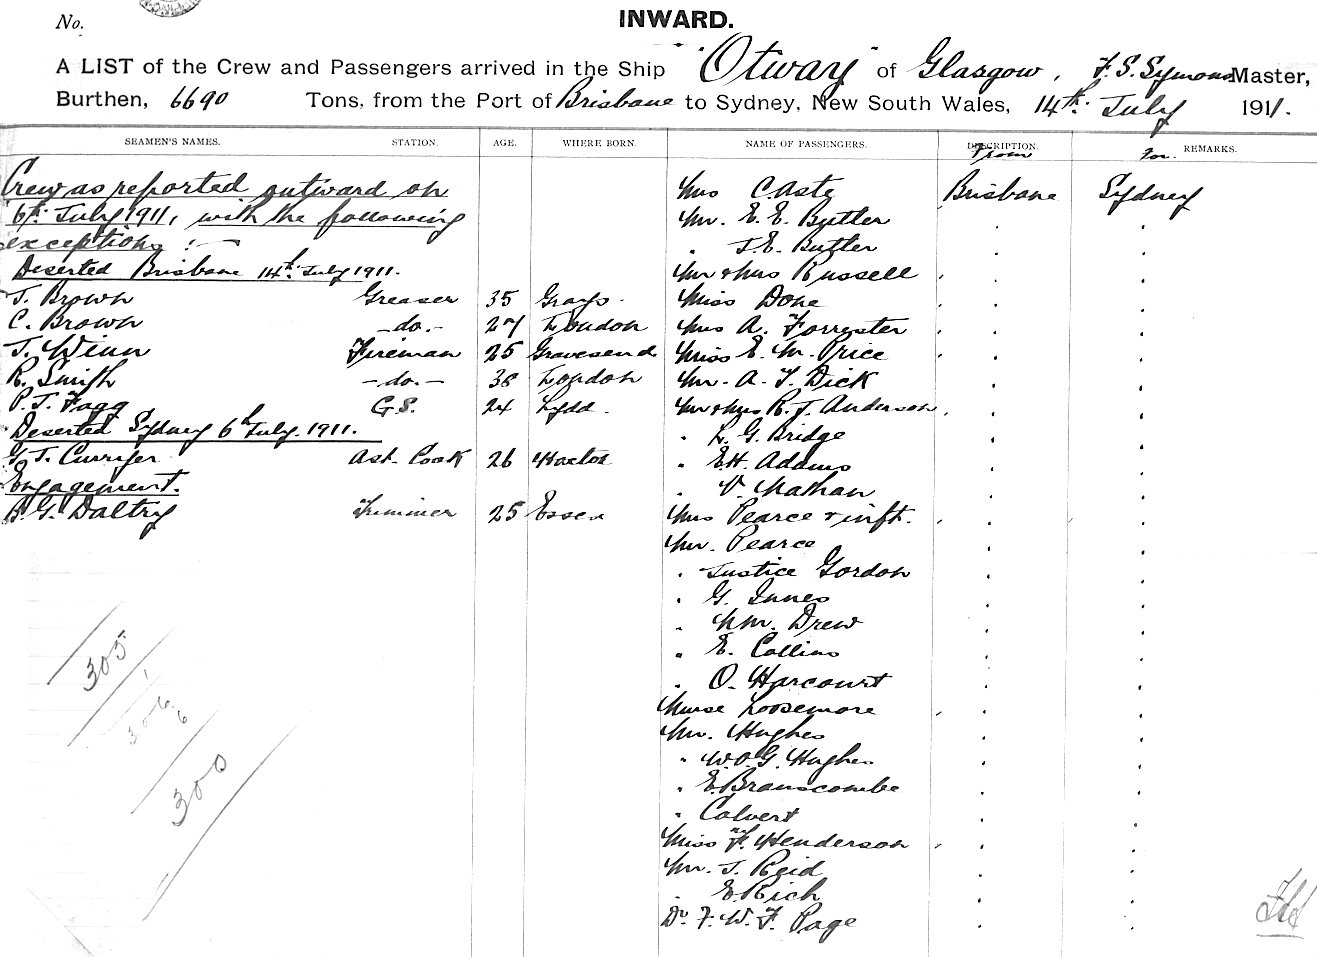 No.
INWARD.
A LIST of the Crew and Passengers arrived in the Ship "Otway" of Glasgow, F. S. Symons Master,
Burthen, 6690 Tons, from the Port of Brisbane to Sydney, New South Wales, 14th July 1911.
SEAMEN'S NAMES. STATION. AGE. WHERE BORN. NAME OF PASSENGERS. DESCRIPTION. From For REMARKS.
Crew as reported outward on
6th July 1911, with the following
exceptions :—
Deserted Brisbane 14th July 1911.
T. Brown Greaser 35 Grays
C. Brown —do.— 27 London
J. Winn Fireman 25 Gravesend
R. Smith —do.— 38 London
P. J. Fagg G.S. 24 Lydd
Deserted Sydney 6th July. 1911.
Curryer Ast. Cook 26 Hoxton
Engagement.
B. G. Daltry Trimmer 25 Essex
Mrs Caste Brisbane Sydney
Mr. E. E. Butler
" J. E. Butler
Mr & Mrs Russell
Miss Done
Mrs A. Forrester
Miss E. M. Price
Mr. A. J. Dick
Mr & Mrs R. J. Anderson
" L. G. Bridge
" E. H. Adams
" V. Nathan
Mrs Pearce & inft.
Mr. Pearce
" Justice Gordon
" G. Innes
" Wm. Drew
" E. Collins
" O. Harcourt
Nurse Loosemore
Mr. Hughes
" W. O. G. Hughes
" E. Branscombe
" Calvert
Miss F. Henderson
Mr. J. Reid
" E. Rich
Dr F. W. F. Page
305
306
6
300